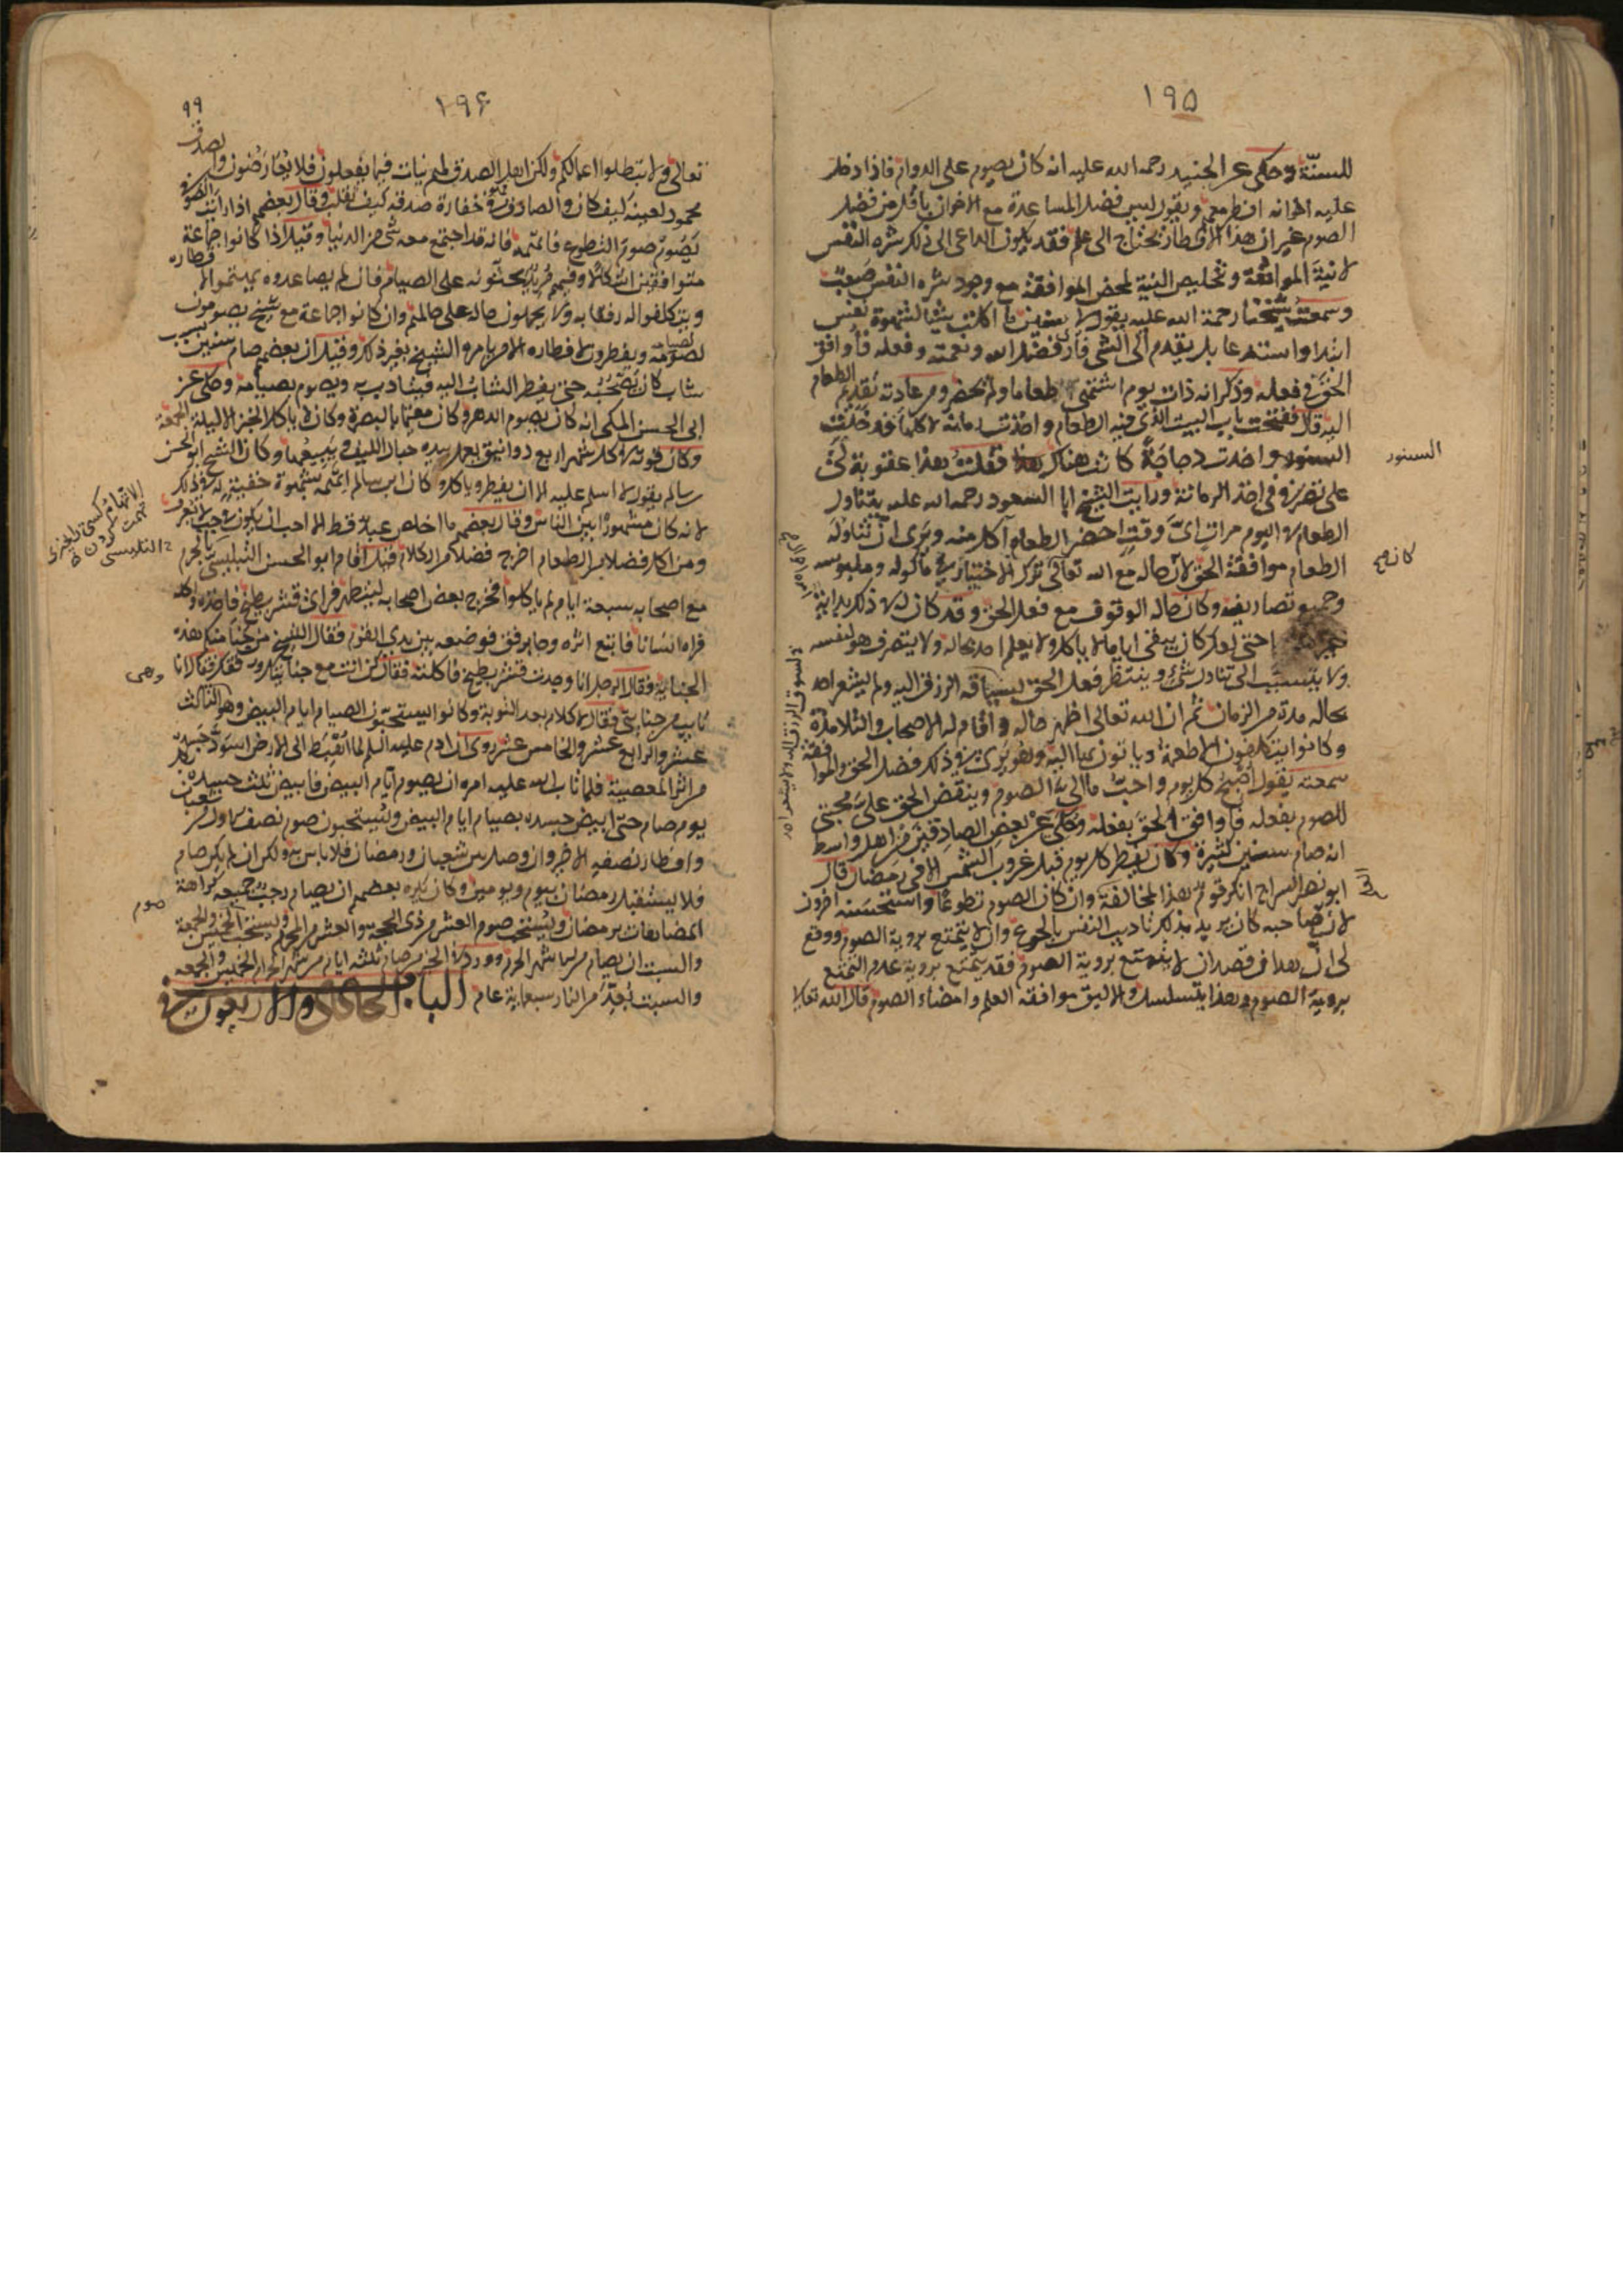 ١٩٥
للسنّة وحكى عن الجنيد رحمه الله عليه انه كان يصوم على الدوام فاذا دخل
عليه اخوانه افطر معهم ويقول ليس فضل المساعدة مع الاخوان باقل من فضل
الصوم غير ان هذا الافطار يحتاج الى علم فقد يكون الداعى الى ذلك شره النفس
لا نية الموافقة وتخليص النية لمحض الموافقة مع وجود شره النفس صعب
وسمعت شيخنا رحمة الله عليه يقول لى سنين ما اكلت شيا لشهوة نفس
ابتداء واستدعا بل يقدم الى الشى فارى فضل الله ونعمته وفعله فاوافق
الحق فى فعله وذكر انه ذات يوم اشتهى طعاما ولم يحضر ومن عادته تقديم الطعام
اليه قال ففتحت باب البيت الذى فيه الطعام واخذت رمانة لاكلها فدخلت
السنور واخذت دجاجة كانت هناك فقلت هذا عقوبة لى
على تصرفى فى اخذ الرمانة ورايت الشيخ ابا السعود رحمه الله عليه يتناول
الطعام فى اليوم مرات اىّ وقت احضر الطعام اكل منه ويرى ان تناوله
الطعام موافقة الحق لان حاله مع الله تعالى ترك الاختيار فى ماكوله وملبوسه
وجميع تصاريفه وكان حاله الوقوف مع فعل الحق وقد كان له فى ذلك بداية
حتى نقل كان يبقى اياما لا ياكل ولا يعلم احد بحاله ولا يتصرف هو لنفسه
ولا يتسبب الى تناول شىء وينتظر فعل الحق لسياقه الرزق اليه ولم يشعر احد
بحاله مدة من الزمان ثم ان الله تعالى اظهر حاله واقام له الاصحاب والتلامذة
وكانوا يتكلفون الاطعمة وياتون بها اليه وهو يرى فى ذلك فضل الحق والموافقة
سمعته يقول اصبح كل يوم واحب ما الى الصوم وينقض الحق على محبتى
للصوم بفعله فاوافق الحق بفعله وحكى عن بعض الصادقين من اهل واسط
انه صام سنين كثيرة وكان يفطر كل يوم قبل غروب الشمس الا فى رمضان قال
ابو نصر السراج انكر قوم هذا لمخالفة وان كان الصوم تطوعا واستحسنه اخرون
لان صاحبه كان يريد بذلك تاديب النفس بالجوع وان لا يتمتع بروية الصوم ووقع
لى ان هذا ان قصد ان لا يتمتع بروية الصوم فقد يتمتع بروية عدم التمتع
بروية الصوم وهذا يتسلسل والاليق موافقة العلم وامضاء الصوم قال الله تعالى
السنور
١٩۶
٩٩
تعالى ولا تبطلوا اعمالكم ولكن اهل الصدق لهم نيات فيما يفعلون فلا يعارضون والصدق
محمود لعينه كيف كان والصادق فى خفارة صدقه كيف تقلب وقال بعضهم اذا رايت الصوفى
يصوم صوم التطوع فاتهمه فانه قد اجتمع معه شى من الدنيا وقيل اذا كانوا جماعة
متوافقين اشكالا وفيهم مريد يحثونه على الصيام فان لم يساعدوه يهتموا لافطاره
ويتكلفوا له رفقا به ولا يحملون حاله على حالهم وان كانوا جماعة مع شيخ يصومون
لصومه ويفطرون لافطاره الا من يامره الشيخ بغير ذلك وقيل ان بعضهم صام سنين بسبب
شاب كان يصحبه حتى ينظر الشاب اليه فيتادب به ويصوم بصيامه وحكى عن
ابى الحسن المكى انه كان يصوم الدهر وكان مقيما بالبصرة وكان لا ياكل الخبز الا ليلة الجمعة
وكان قوته فى كل شهر اربع دوانيق يعمل بيده حبال الليف ويبيعها وكان الشيخ ابو الحسن
سالم يقول لا اسلم عليه الا ان يفطر وياكل وكان ابن سالم اتهمه بشهوة خفية له فى ذلك
لانه كان مشهورا بين الناس وقال بعضهم ما اخلص عبد قط الا احب ان يكون فى جب لا يعرف
ومن اكل فضلا من الطعام اخرج فضلا من الكلام وقيل اقام ابو الحسن التنيسى بالحرم
مع اصحابه سبعة ايام لم ياكلوا فخرج بعض اصحابه ليتطهر فراى قشر بطيخ فاخذه واكله
فراه انسان فاتبع اثره وجا برفق فوضعه بين يدى القوم فقال الشيخ من جنا منكم هذه
الجناية فقال الرجل انا وجدت قشر بطيخ فاكلته فقال كن انت مع جنايتك ورفقك فقال انا
تايب من جنايتى فقال لا كلام بعد التوبة وكانوا يستحبون الصيام ايام البيض وهو الثالث
عشر والرابع عشر والخامس عشر روى ان ادم عليه السلم لما اهبط الى الارض اسود جسده
من اثر المعصية فلما تاب الله عليه امره ان يصوم ايام البيض فابيض ثلث جسده بكل
يوم صام حتى ابيض جسده بصيام ايام البيض ويستحبون صوم نصف الاول من شعبان
وافطار نصفه الاخير وان وصل بين شعبان ورمضان فلا باس به ولكن ان لم يكن صام
فلا يستقبل رمضان بيوم ويومين وكان يكره بعضهم ان يصام رجب جميعه كراهة
المضاهاة برمضان ويستحب صوم العشر من ذى الحجة والعشر من المحرم ويستحب الخميس والجمعة
والسبت ان يصام من الاشهر الحرم وورد فى الخبر من صام ثلثة ايام من شهر الحرام الخميس والجمعة
والسبت بعد من النار سبعماية عام الباب الحادى والاربعون فى
وهى
صوم